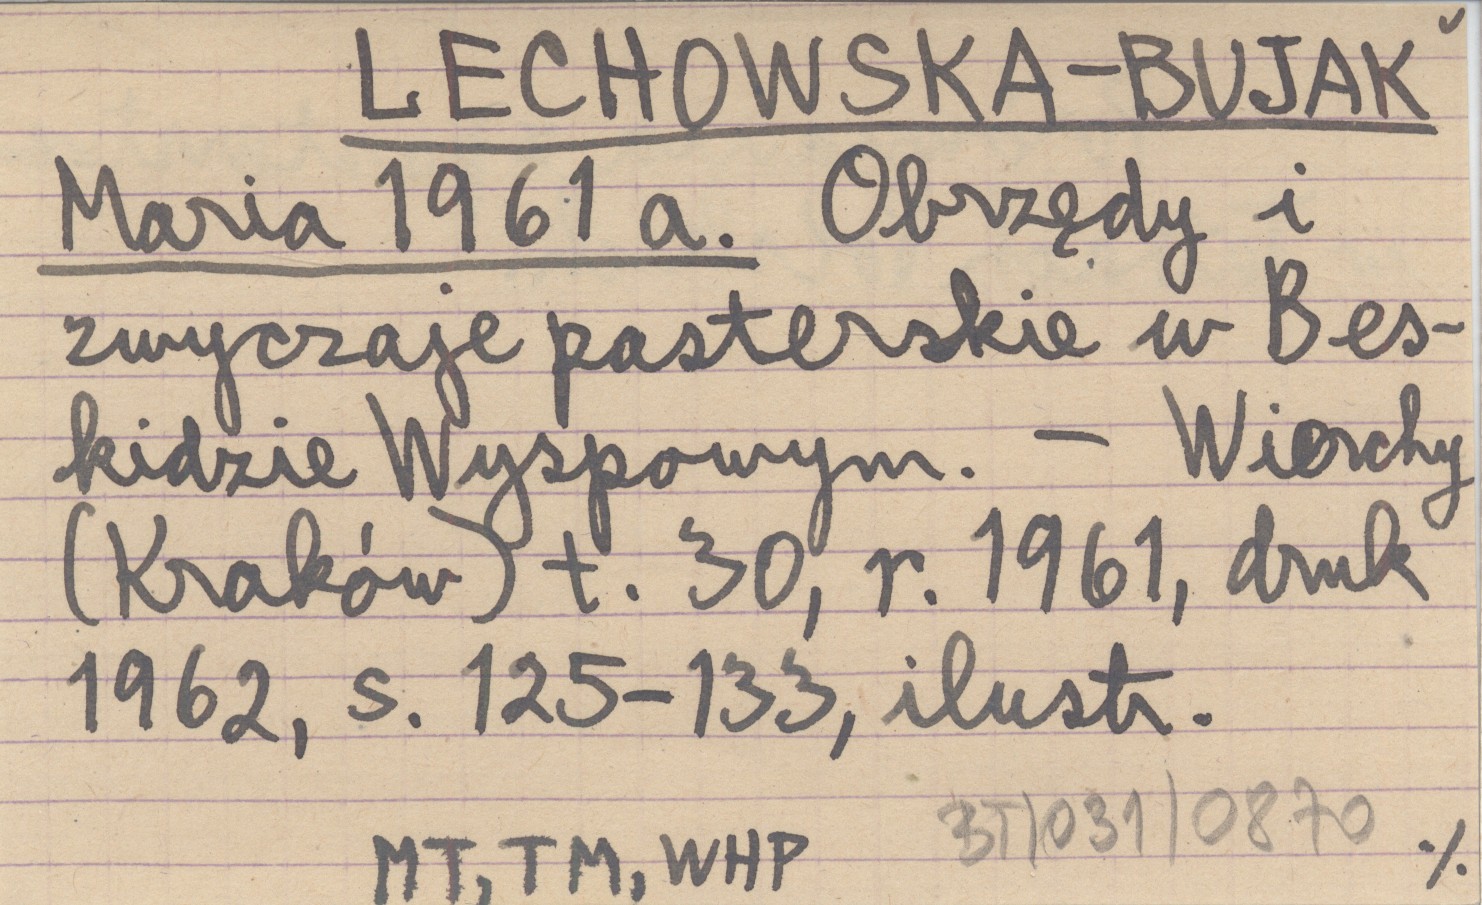 LECHOWSKA-BUJAK
Maria 1961 a. Obrzędy i
zwyczaje pasterskie w Bes-
kidzie Wyspowym. – Wierchy
(Kraków) t. 30, r. 1961, druk
1962, s. 125-133, ilustr.
BT/031/0870
MT, TM, WHP ·/.